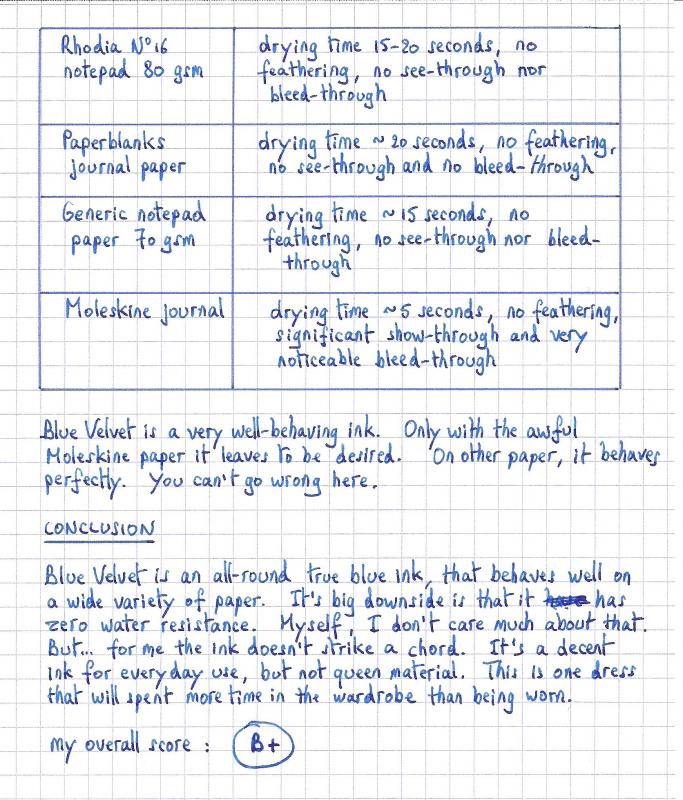 Rhodia N°16
notepad 80 gsm
drying time 15-20 seconds, no
feathering, no see-through nor
bleed-through
Paperblanks
journal paper
drying time ~ 20 seconds, no feathering,
no see-through and no bleed-through
Generic notepad
paper 70 gsm
drying time ~ 15 seconds, no
feathering, no see-through nor bleed-
through
Moleskine journal
drying time ~5 seconds, no feathering,
significant show-through and very
noticeable bleed-through
Blue Velvet is a very well-behaving ink. Only with the awful
Moleskine paper it leaves to be desired. On other paper, it behaves
perfectly. You can't go wrong here.
CONCLUSION
Blue Velvet is an all-round true blue ink, that behaves well on
a wide variety of paper. It's big downside is that it has
zero water resistance. Myself, I don't care much about that.
But... for me the ink doesn't strike a chord. It's a decent
ink for everyday use, but not queen material. This is one dress
that will spent more time in the wardrobe than being worn.
My overall score : B+